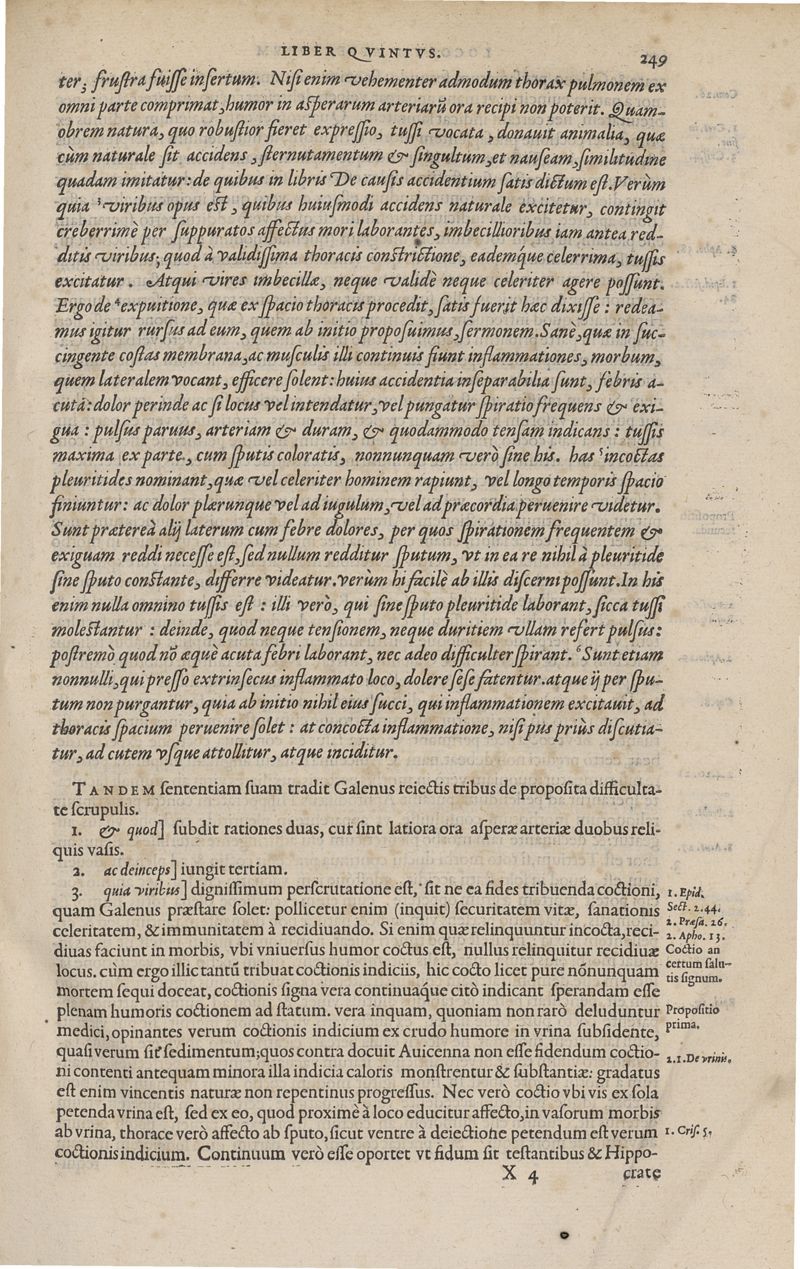 LIBER QVINTVS.
249
ter; frustra fuisse insertum. Nisi enim vehementer admodum thorax pulmonem ex
omni parte comprimat, humor in asperarum arteriarũ ora recipi non poterit. Quam-
obrem natura, quo robustior fieret expressio, tussi vocata, donauit animalia, quæ
cùm naturale sit accidens, sternutamentum & singultum, et nauseam, similitudine
quadam imitatur: de quibus in libris De causis accidentium satis dictum est. Verùm
quia ³viribus opus est, quibus huiusmodi accidens naturale excitetur, contingit
creberrimè per suppuratos affectus mori laborantes, imbecillioribus iam antea red-
ditis viribus; quod à validissima thoracis constrictione, eademq́ue celerrima, tussis
excitatur. Atqui vires imbecillæ, neque validè neque celeriter agere possunt.
Ergo de ⁴expuitione, quæ ex spacio thoracis procedit, satis fuerit hæc dixisse: redea-
mus igitur rursus ad eum, quem ab initio proposuimus, sermonem. Sanè, quæ in suc-
cingente costas membrana, ac musculis illi continuis fiunt inflammationes, morbum,
quem lateralem vocant, efficere solent: huius accidentia inseparabilia sunt, febris a-
cuta: dolor perinde ac si locus vel intendatur, vel pungatur spiratio frequens & exi-
gua: pulsus paruus, arteriam & duram, & quodammodo tensam indicans: tussis
maxima ex parte, cum sputis coloratis, nonnunquam verò sine his. has ⁵incoctas
pleuritides nominant, quæ vel celeriter hominem rapiunt, vel longo temporis spacio
finiuntur: ac dolor plærunque vel ad iugulum, vel ad præcordia peruenire videtur.
Sunt prætereà alij laterum cum febre dolores, per quos spirationem frequentem &
exiguam reddi necesse est, sed nullum redditur sputum, vt in ea re nihil à pleuritide
sine sputo constante, differre videatur. verùm hi facilè ab illis discerni possunt. In his
enim nulla omnino tussis est: illi verò, qui sine sputo pleuritide laborant, sicca tussi
molestantur: deinde, quod neque tensionem, neque duritiem vllam refert pulsus:
postremò quod nõ æquè acuta febri laborant, nec adeo difficulter spirant. ⁶Sunt etiam
nonnulli, qui presso extrinsecus inflammato loco, dolere sese fatentur. atque ij per spu-
tum non purgantur, quia ab initio nihil eius succi, qui inflammationem excitauit, ad
thoracis spacium peruenire solet: at concocta inflammatione, nisi pus priùs discutia-
tur, ad cutem vsque attollitur, atque inciditur.
TANDEM sententiam suam tradit Galenus reiectis tribus de proposita difficulta-
te scrupulis.
1. & quod] subdit rationes duas, cur sint latiora ora asperæ arteriæ duobus reli-
quis vasis.
2. ac deinceps] iungit tertiam.
3. quia viribus] dignissimum perscrutatione est, sit ne ea fides tribuenda coctioni,
quam Galenus præstare solet: pollicetur enim (inquit) securitatem vitæ, sanationis
celeritatem, & immunitatem à recidiuando. Si enim quæ relinquuntur incocta, reci-
diuas faciunt in morbis, vbi vniuersus humor coctus est, nullus relinquitur recidiuæ
locus. cùm ergo illic tantũ tribuat coctionis indiciis, hic cocto licet pure nõnunquam
mortem sequi doceat, coctionis signa vera continuaq́ue citò indicant sperandam esse
plenam humoris coctionem ad statum. vera inquam, quoniam non rarò deluduntur
medici, opinantes verum coctionis indicium ex crudo humore in vrina subsidente,
quasi verum sit sedimentum; quos contra docuit Auicenna non esse fidendum coctio-
ni contenti antequam minora illa indicia caloris monstrentur & substantiæ: gradatus
est enim vincentis naturæ non repentinus progressus. Nec verò coctio vbi vis ex sola
petenda vrina est, sed ex eo, quod proximè à loco educitur affecto, in vasorum morbis
ab vrina, thorace verò affecto ab sputo, sicut ventre à deiectione petendum est verum
coctionis indicium. Continuum verò esse oportet vt fidum sit testantibus & Hippo-
X 4
crate
1. Epid.
Sect. 2. 44.
2. Præsa. 26.
2. Apho. 13.
Coctio an
certum salu-
tis signum.
Propositio
prima.
2.1. De vrinis.
1. Cris. 5.